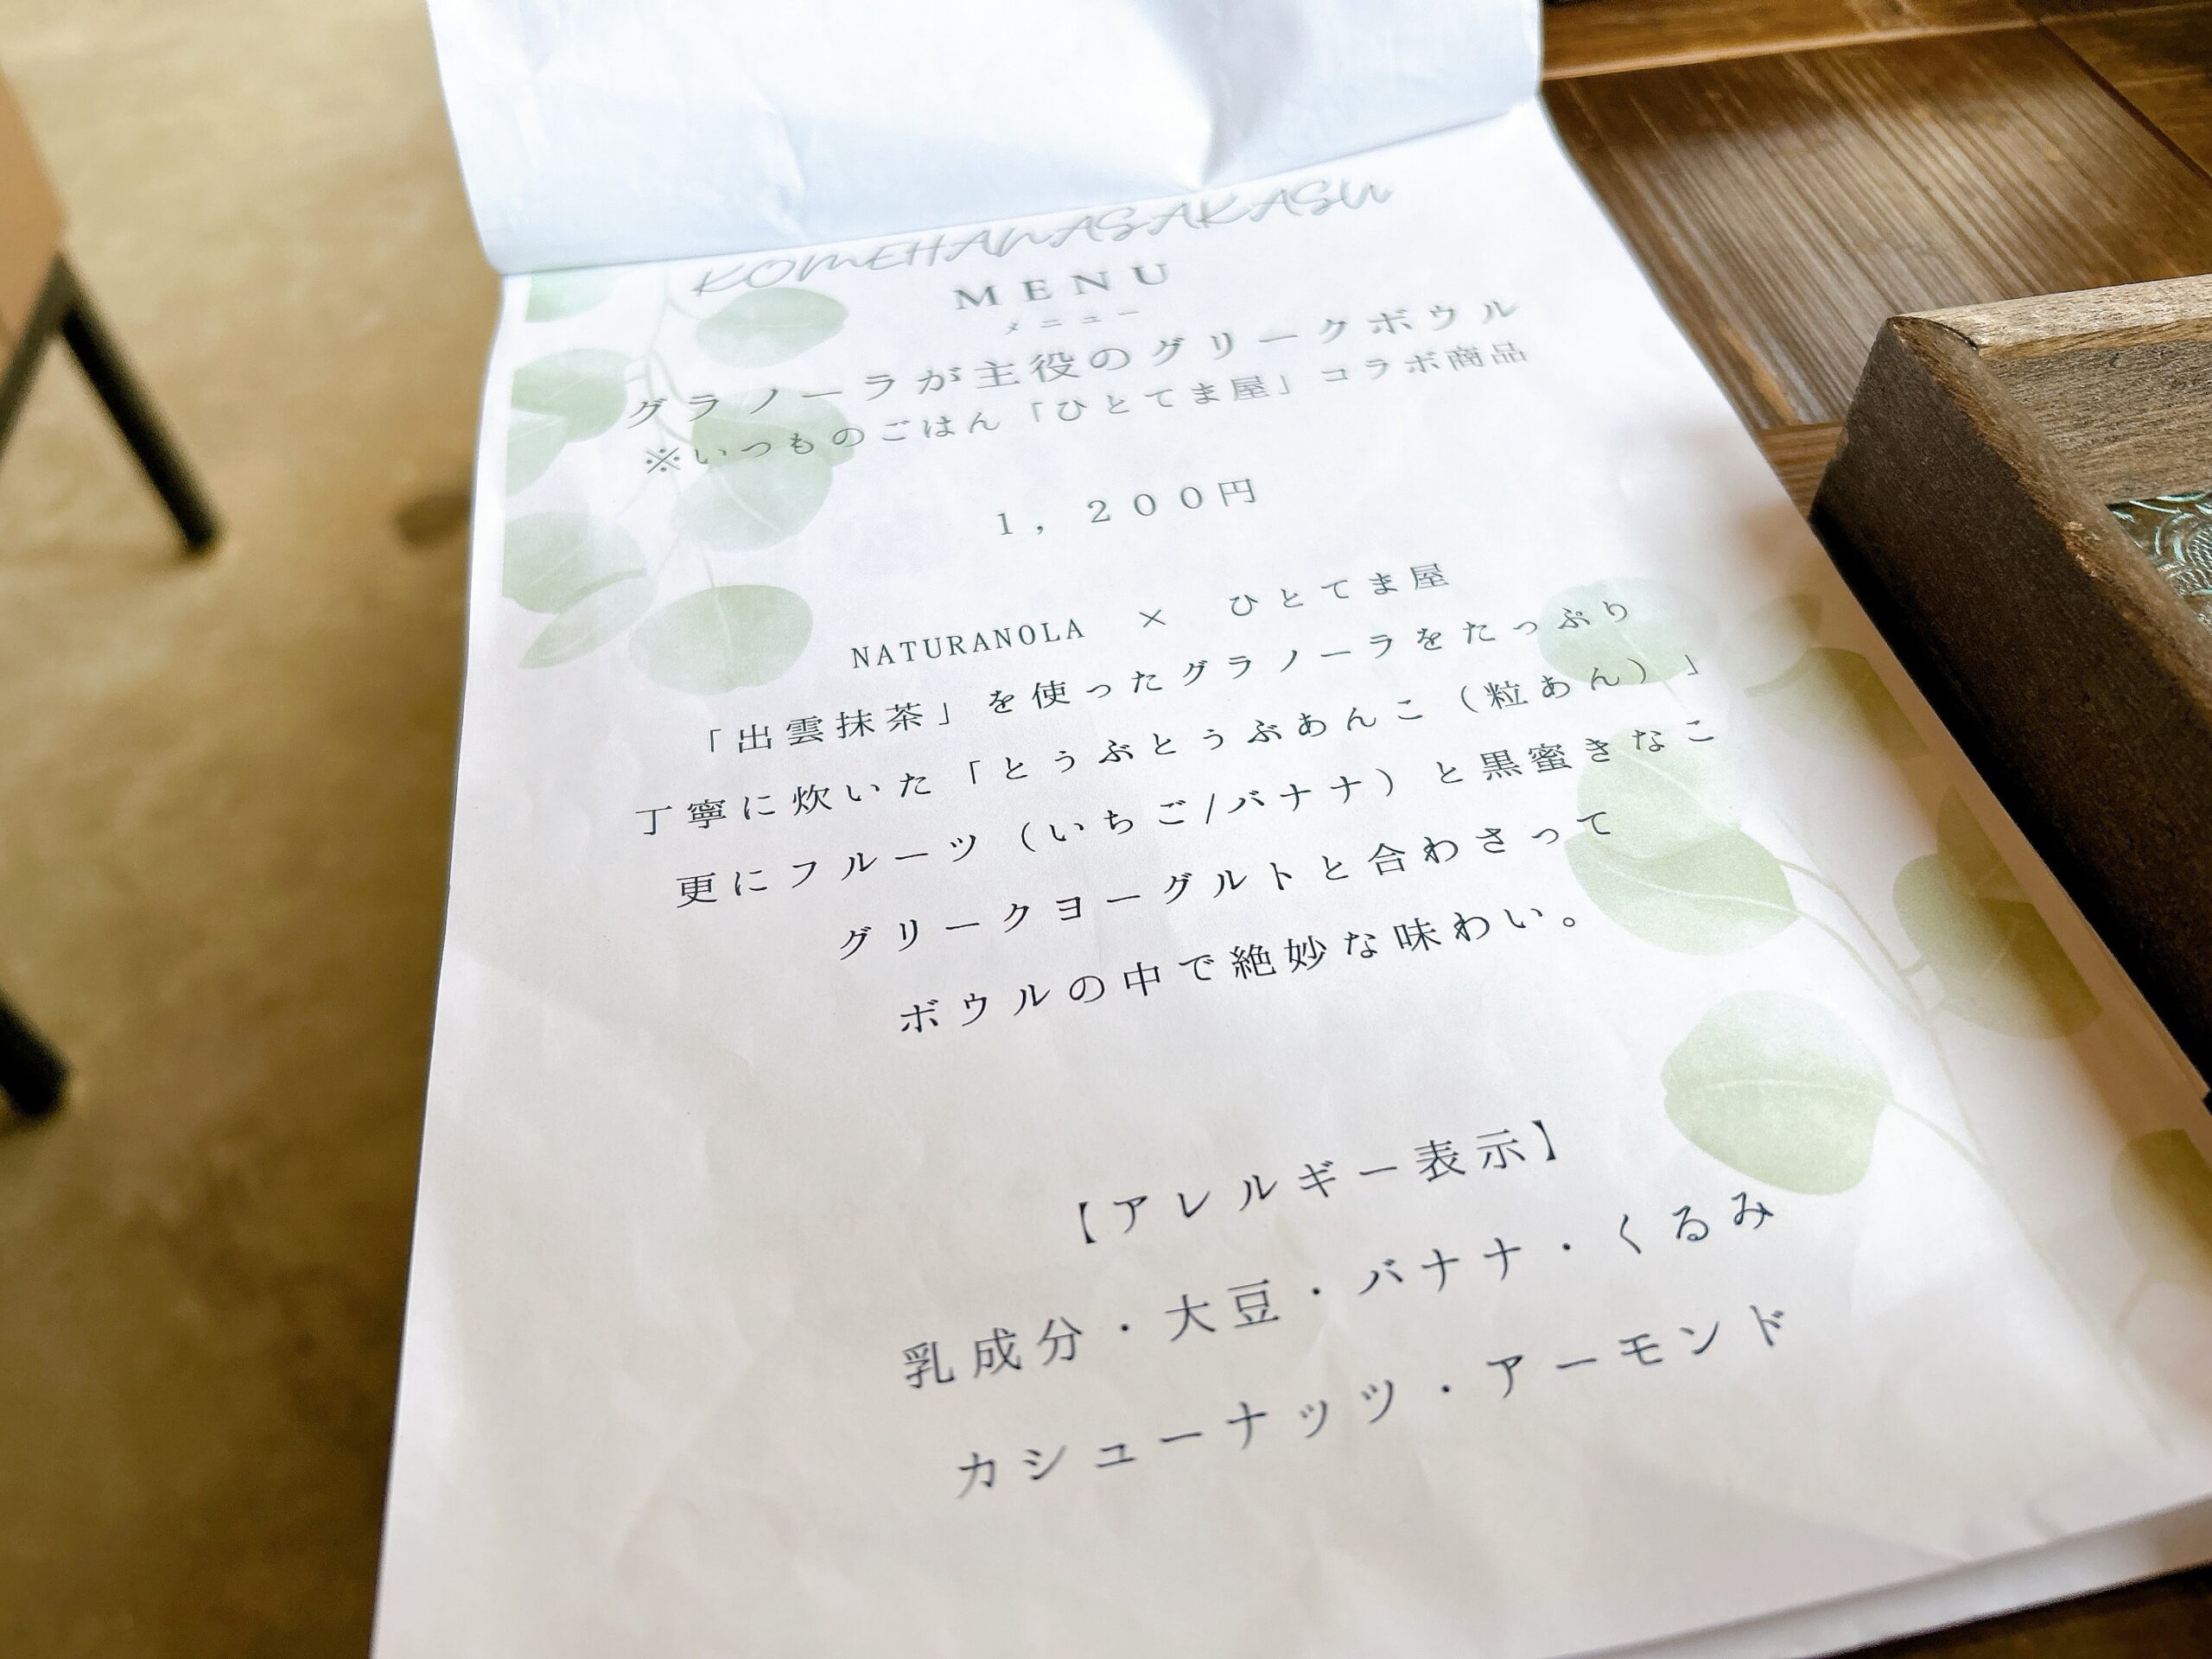 KOMEHANASAKASU
MENU
メニュー
グラノーラが主役のグリークボウル
※いつものごはん「ひとてま屋」コラボ商品
1，200円
NATURANOLA × ひとてま屋
「出雲抹茶」を使ったグラノーラをたっぷり
丁寧に炊いた「とぅぶとぅぶあんこ（粒あん）」
更にフルーツ（いちご/バナナ）と黒蜜きなこ
グリークヨーグルトと合わさって
ボウルの中で絶妙な味わい。
【アレルギー表示】
乳成分・大豆・バナナ・くるみ
カシューナッツ・アーモンド